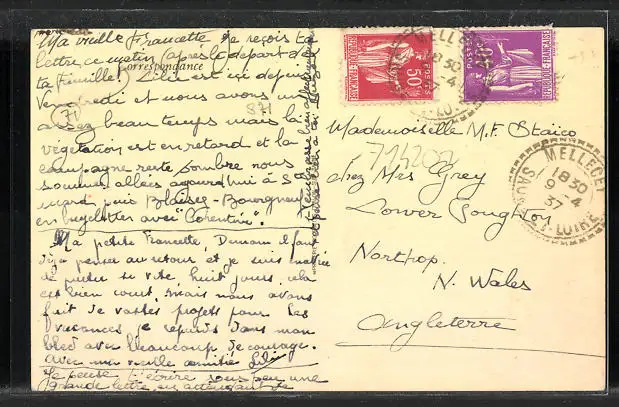 Ma vieille Francette Je reçois ta
lettre ce matin (après le départ de
ta famille) Lili est ici depuis
Correspondance
Vendredi et nous avons un
assez beau temps mais la
végétation est en retard et la
campagne reste sombre nous
sommes allées aujourd'hui à St
puis Blaisy-
en avec "Corentine".
Ma petite Francette, Demain il faut
déjà penser au retour et je suis
de partir si vite huit jours, cela
est bien court, mais nous avons
fait de vastes projets pour les
vacances, je repars dans mon
bled avec beaucoup de courage.
avec ma vieille amitié Lili
Je pense t'écrire sous peu une
grande lettre, en attendant je
t'embrasse bien
71
871
714202
Mademoiselle M.F. Staico
chez Mrs Grey
Lower Soughton
Northop.
N. Wales
Angleterre
REPUBLIQUE FRANÇAISE
POSTES
50c
REPUBLIQUE FRANÇAISE
POSTES
MELLECEY
18 30
9-4
37
SAONE-ET-LOIRE
MELLECEY
18 30
9-4
37
SAONE-ET-LOIRE